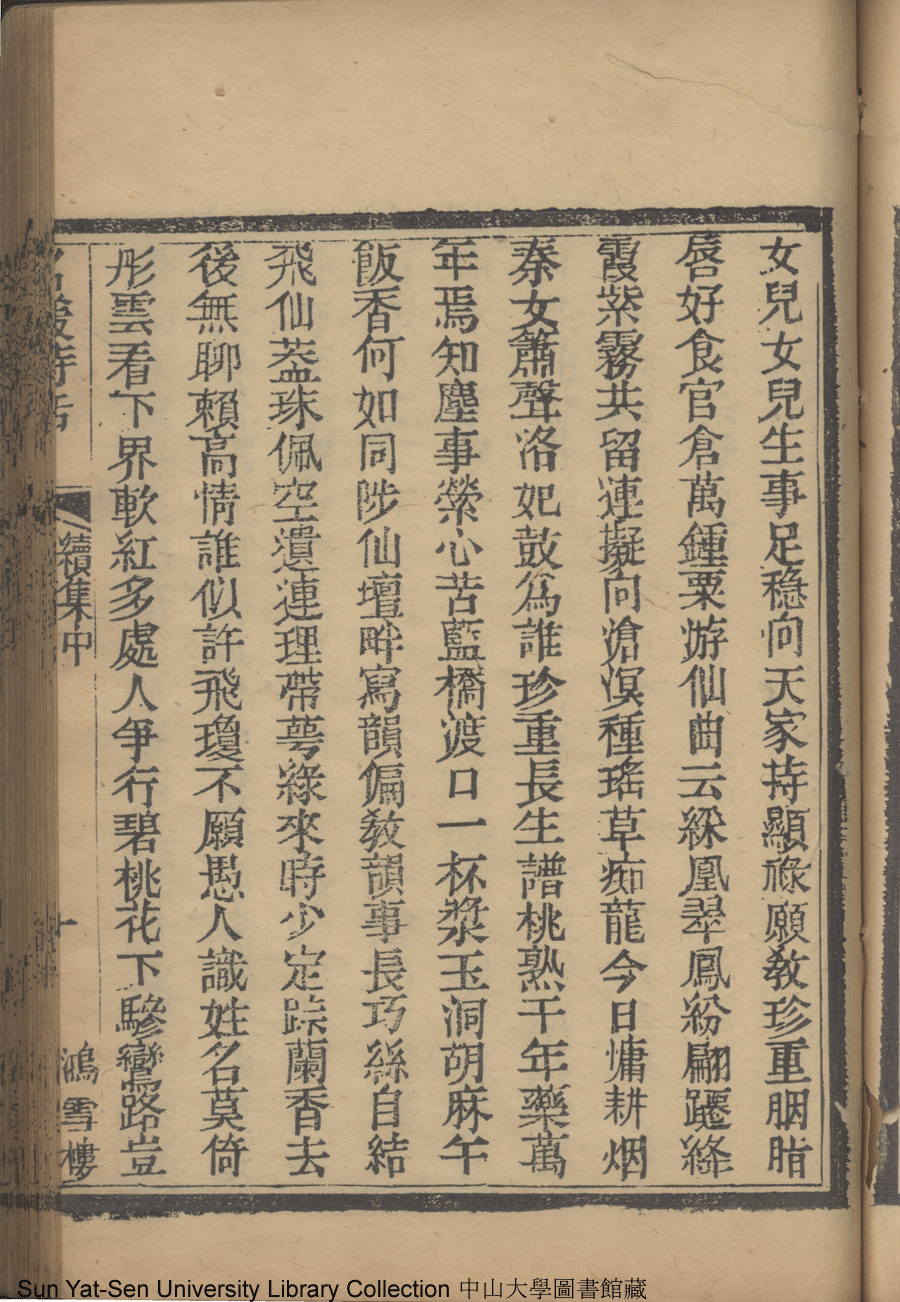 女兒女兒生事足穩向天家持顯祿願教珍重胭脂
唇好食官倉萬鍾粟游仙曲云綵凰翠鳳紛翩躚絳
霞紫霧共留連擬向滄溟種瑤草痴龍今日慵耕烟
秦女簫聲洛妃鼓爲誰珍重長生譜桃熟千年藥萬
年焉知塵事縈心苦藍橋渡口一杯漿玉洞胡麻午
飯香何如同陟仙壇畔寫韻偏教韻事長巧絲自結
飛仙葢珠佩空遺連理帶萼綠來時少定踪蘭香去
後無聊賴高情誰似許飛瓊不願愚人識姓名莫倚
彤雲看下界軟紅多處人爭行碧桃花下驂鸞路豈
名媛詩話
續集中
十
鴻雪樓
Sun Yat-Sen University Library Collection 中山大學圖書館藏